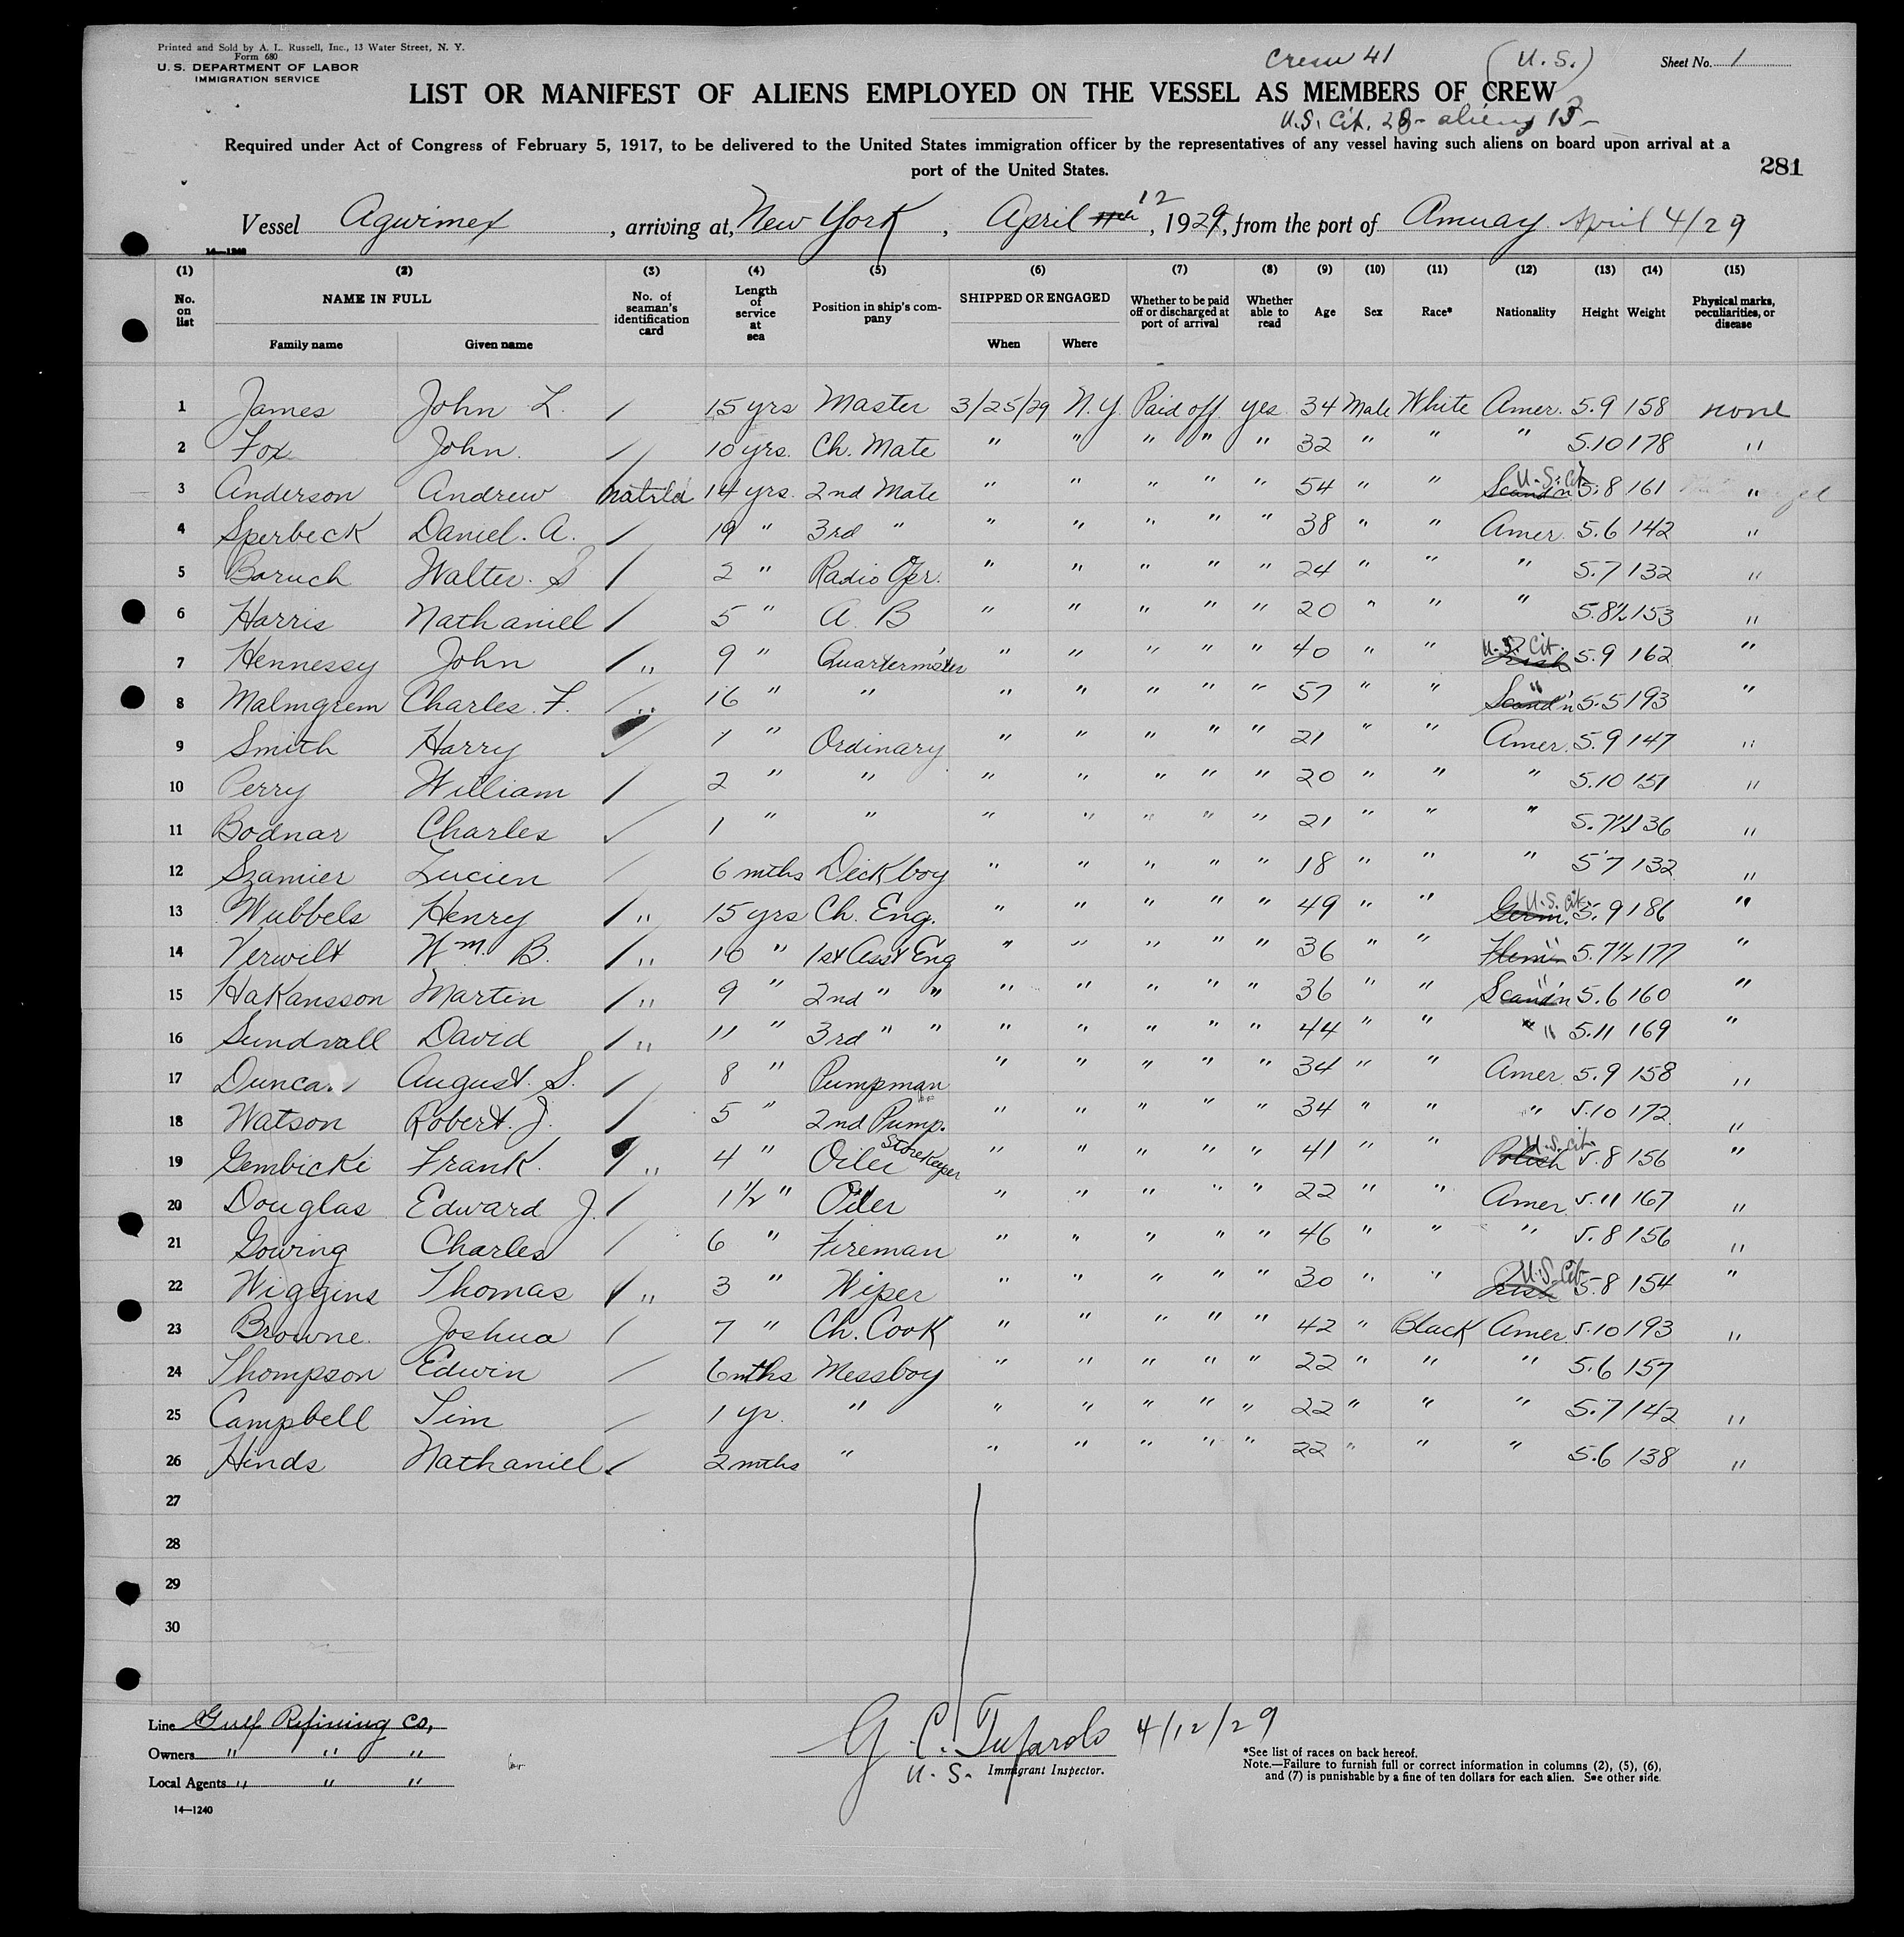 Printed and Sold by A. L. Russell, Inc., 13 Water Street, N. Y.
Form 680
U. S. DEPARTMENT OF LABOR
IMMIGRATION SERVICE
Crew 41 (U. S.)
Sheet No. 1
LIST OR MANIFEST OF ALIENS EMPLOYED ON THE VESSEL AS MEMBERS OF CREW
U.S. Cit. 28 - aliens 13 -
Required under Act of Congress of February 5, 1917, to be delivered to the United States immigration officer by the representatives of any vessel having such aliens on board upon arrival at a
port of the United States.
281
Vessel Agwimex, arriving at, New York, April 11th 12, 1929, from the port of Amuay April 4/29
14—1240
(1) (2) (3) (4) (5) (6) (7) (8) (9) (10) (11) (12) (13) (14) (15)
No. on list NAME IN FULL Family name Given name No. of seaman's identification card Length of service at sea Position in ship's company SHIPPED OR ENGAGED When Where Whether to be paid off or discharged at port of arrival Whether able to read Age Sex Race* Nationality Height Weight Physical marks, peculiarities, or disease
1 James John L. / 15 yrs Master 3/25/29 N.Y. Paid off yes 34 Male White Amer. 5.9 158 none
2 Fox John. / 10 yrs. Ch. Mate " " " " " 32 " " " 5.10 178 "
3 Anderson Andrew 14 yrs. 2nd Mate " " " " " 54 " " Scand'n U.S. Cit. 5.8 161 "
4 Sperbeck Daniel. A. / 19 " 3rd " " " " " " 38 " " Amer. 5.6 142 "
5 Baruch Walter. S / 2 " Radio Oper. " " " " " 24 " " " 5.7 132 "
6 Harris Nathaniel / 5 " A. B " " " " " 20 " " " 5.8½ 153 "
7 Hennessy John / " 9 " Quartermaster " " " " " 40 " " Irish U.S. Cit. 5.9 162 "
8 Malmgrem Charles. F. / " 16 " " " " " " " 57 " " Scand'n " 5.5 193 "
9 Smith Harry ✓ 1 " Ordinary " " " " " 21 " " Amer. 5.9 147 "
10 Perry William / 2 " " " " " " " 20 " " " 5.10 151 "
11 Bodnar Charles ✓ 1 " " " " " " " 21 " " " 5.7½ 136 "
12 Szamier Lucien / 6 mths Deckboy " " " " " 18 " " " 5'7 132 "
13 Wubbels Henry / " 15 yrs Ch. Eng. " " " " " 49 " " Germ. U.S. Cit. 5.9 186 "
14 Verwilt Wm. B. / " 10 " 1st Asst Eng " " " " " 36 " " Flem'n " 5.7½ 177 "
15 Hakansson Martin / " 9 " 2nd " " " " " " " 36 " " Scand'n " 5.6 160 "
16 Sundvall David / " 11 " 3rd " " " " " " " 44 " " " " 5.11 169 "
17 Duncan August. S. / 8 " Pumpman " " " " " 34 " " Amer 5.9 158 "
18 Watson Robert. J. / 5 " 2nd Pump. " " " " " 34 " " " 5.10 172 "
19 Gembicki Frank. / " 4 " Oiler Storekeeper " " " " " 41 " " Polish U.S. Cit. 5.8 156 "
20 Douglas Edward J. / 1½ " Oiler " " " " " 22 " " Amer 5.11 167 "
21 Gowing Charles / 6 " Fireman " " " " " 46 " " " 5.8 156 "
22 Wiggins Thomas / " 3 " Wiper " " " " " 30 " " Irish U.S. Cit. 5.8 154 "
23 Browne. Joshua / 7 " Ch. Cook " " " " " 42 " Black Amer. 5.10 193 "
24 Thompson Edwin / 6 mths Messboy " " " " " 22 " " " 5.6 157
25 Campbell Tim / 1 yr. " " " " " " 22 " " " 5.7 142 "
26 Hinds Nathaniel ✓ 2 mths " " " " " " 22 " " " 5.6 138 "
27
28
29
30
Line Gulf Refining Co,
Owners " " "
Local Agents " " "
14—1240
G. C. Tufarolo 4/12/29
U. S. Immigrant Inspector.
*See list of races on back hereof.
Note.—Failure to furnish full or correct information in columns (2), (5), (6),
and (7) is punishable by a fine of ten dollars for each alien. See other side.